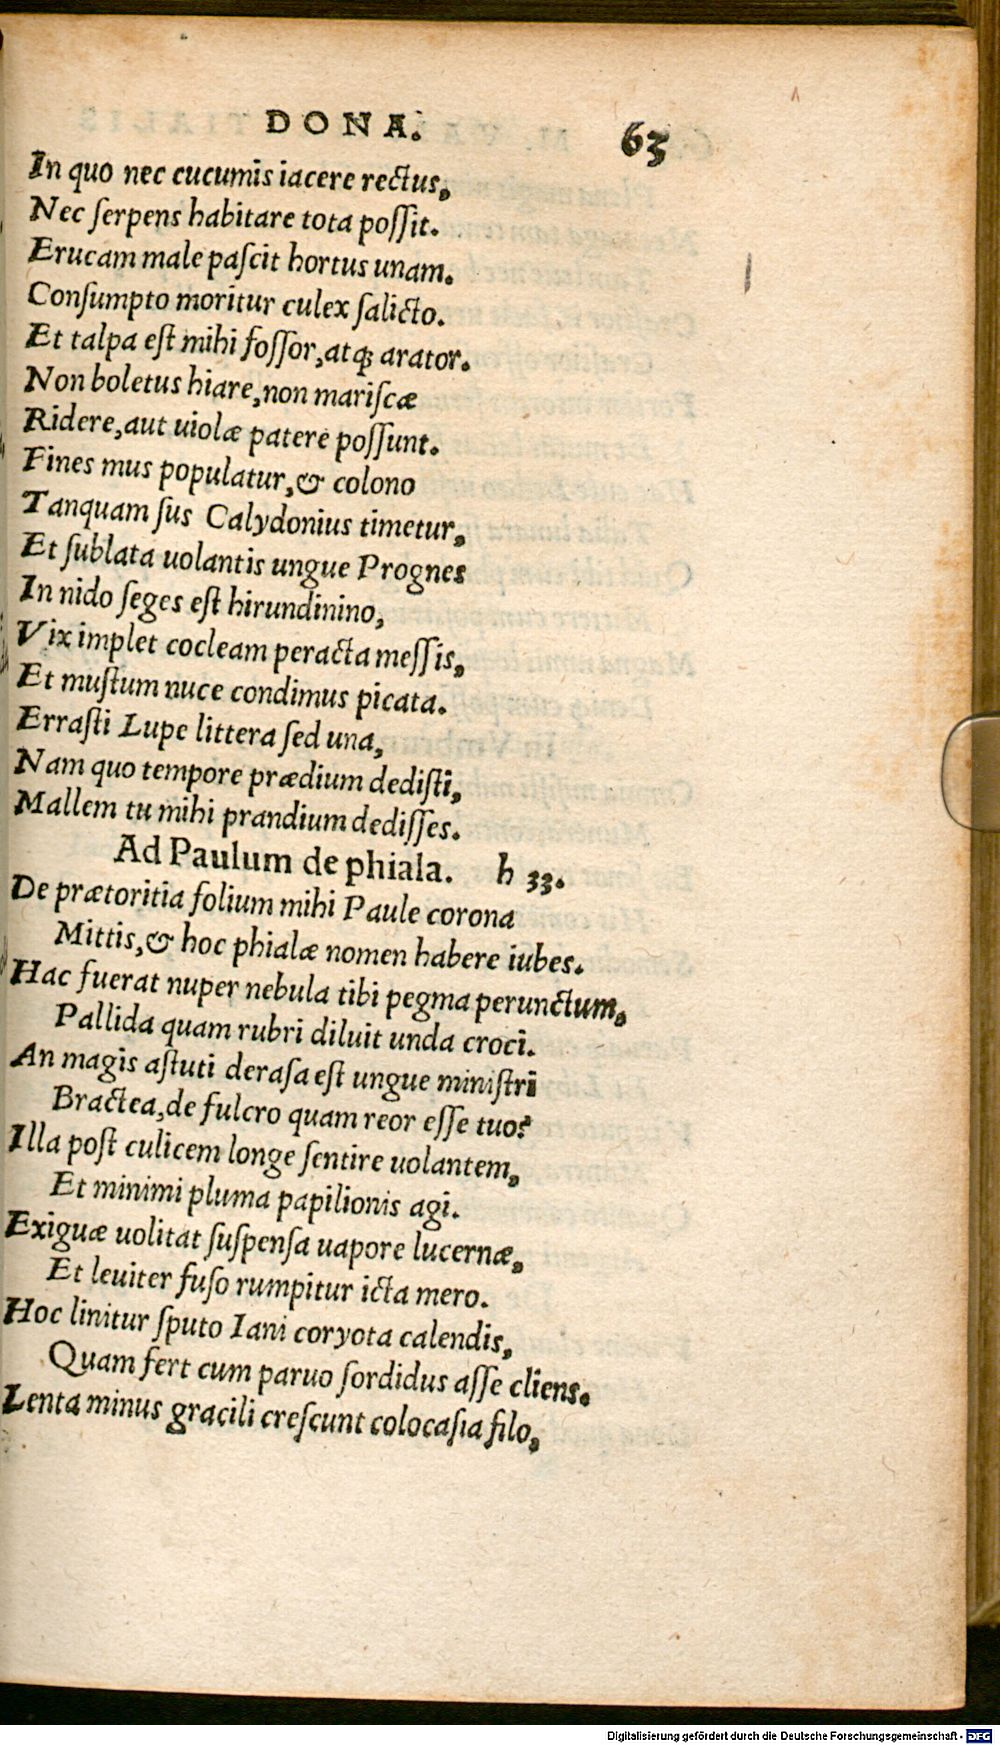 DONA. 63
In quo nec cucumis iacere rectus,
Nec ſerpens habitare tota poſſit.
Erucam male paſcit hortus unam.
Conſumpto moritur culex ſalicto.
Et talpa eſt mihi foſſor, atq; arator.
Non boletus hiare, non mariſcæ
Ridere, aut uiolæ patere poſſunt.
Fines mus populatur, & colono
Tanquam ſus Calydonius timetur,
Et ſublata uolantis ungue Prognes
In nido ſeges eſt hirundinino,
Vix implet cocleam peracta meſſis,
Et muſtum nuce condimus picata.
Erraſti Lupe littera ſed una,
Nam quo tempore prædium dediſti,
Mallem tu mihi prandium dediſſes.
Ad Paulum de phiala. h 33.
De prætoritia folium mihi Paule corona
Mittis, & hoc phialæ nomen habere iubes.
Hac fuerat nuper nebula tibi pegma perunctum,
Pallida quam rubri diluit unda croci.
An magis aſtuti deraſa eſt ungue miniſtri
Bractea, de fulcro quam reor eſſe tuo?
Illa poſt culicem longe ſentire uolantem,
Et minimi pluma papilionis agi.
Exiguæ uolitat ſuſpenſa uapore lucernæ,
Et leuiter fuſo rumpitur icta mero.
Hoc linitur ſputo Iani coryota calendis,
Quam fert cum paruo ſordidus aſſe cliens.
Lenta minus gracili creſcunt colocaſia filo,
Digitalisierung gefördert durch die Deutsche Forschungsgemeinschaft - DFG